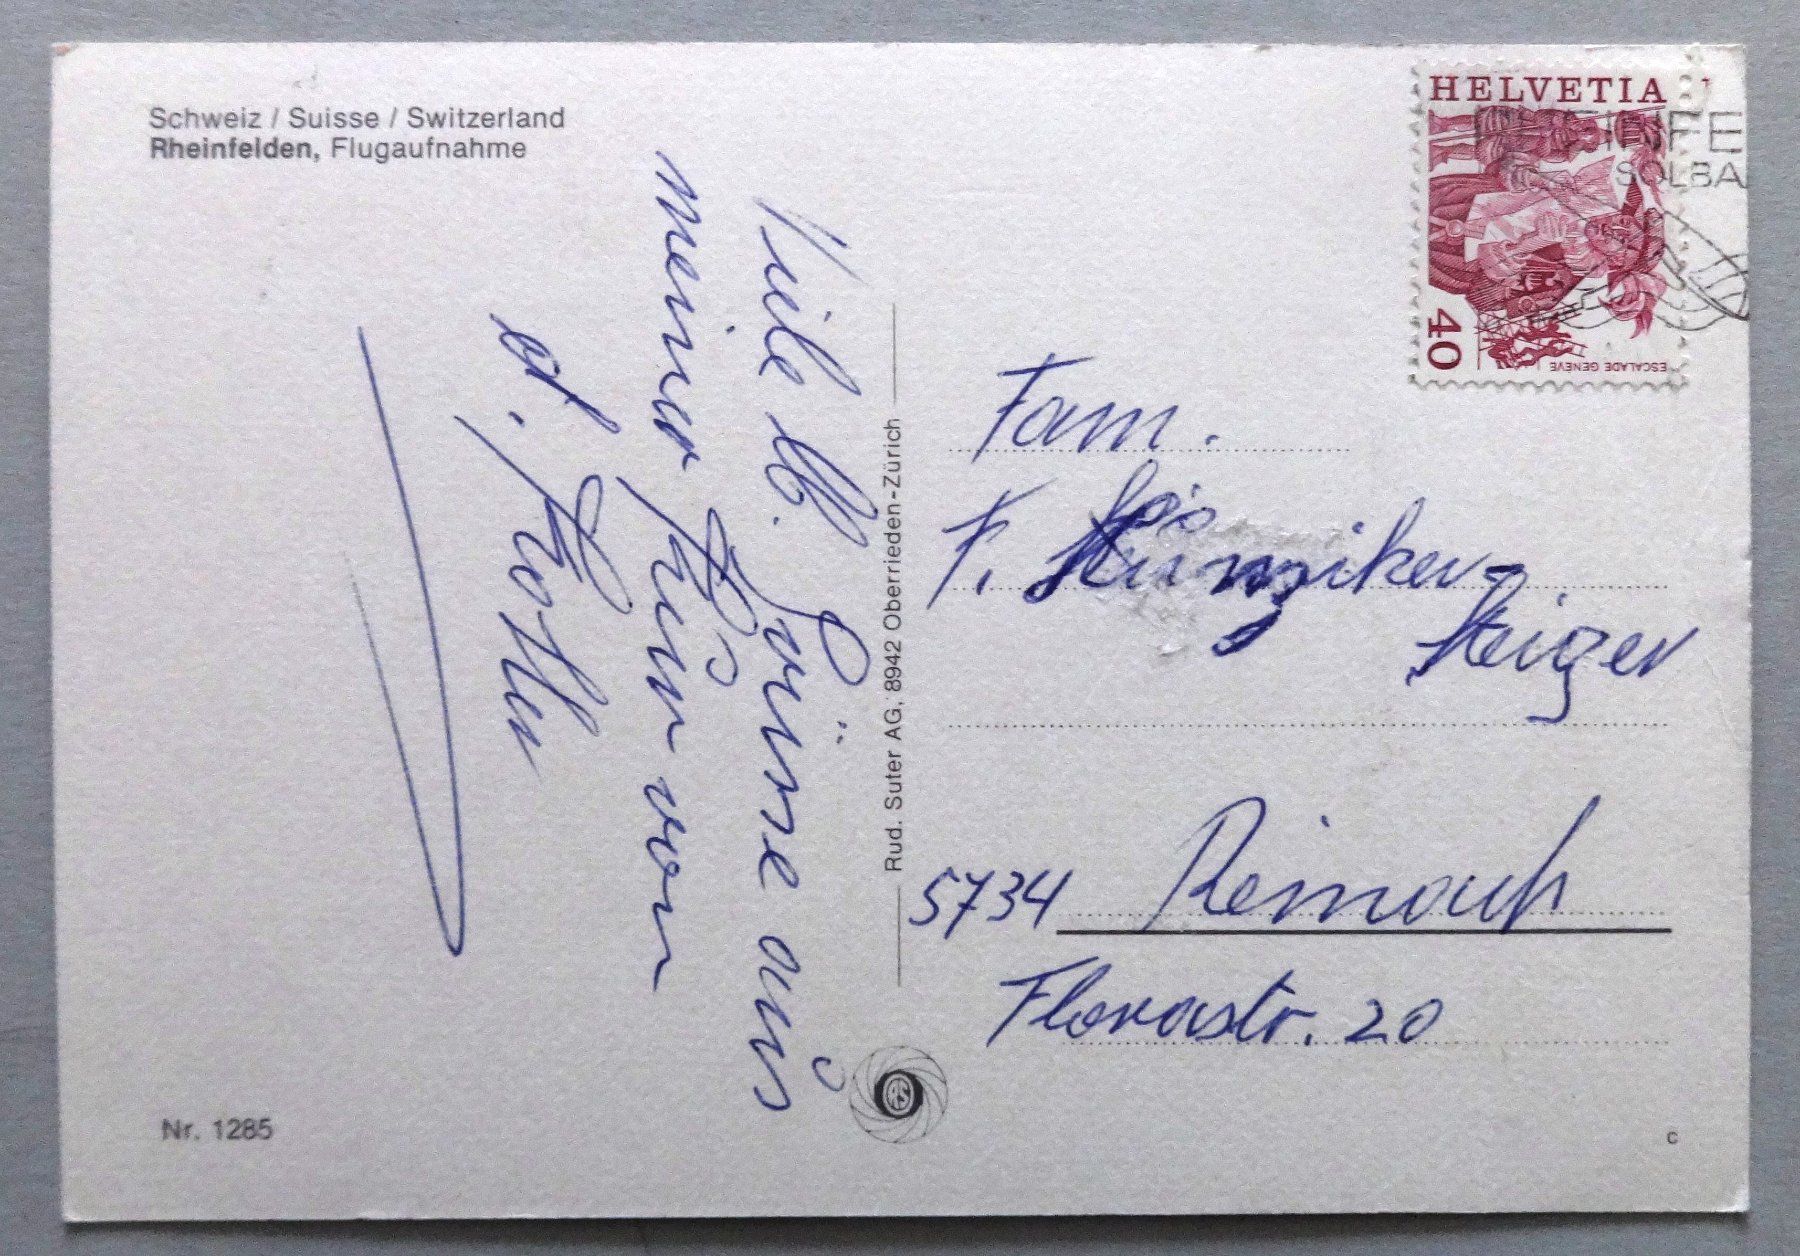 Schweiz / Suisse / Switzerland
Rheinfelden, Flugaufnahme
Viele lb. Grüsse aus
meiner Kur von
d. Rolle
Nr. 1285
Rud. Suter AG, 8942 Oberrieden-Zürich
RS
HELVETIA
40
ESCALADE GENÈVE
RHEINFE
SOLBA
Fam.
F. Hunziker-
Steiger
5734 Reinach
Florastr. 20
c